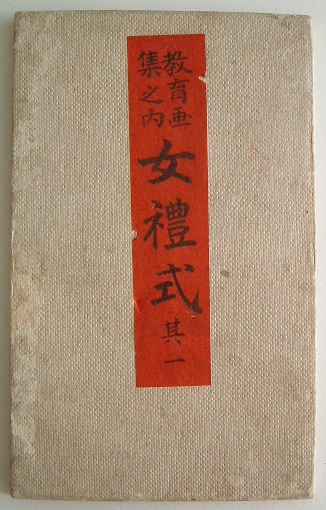 教育画
集之内
女禮式
其一